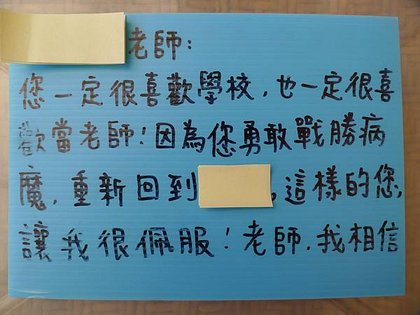 老師:
您一定很喜歡學校,也一定很喜
歡當老師!因為您勇敢戰勝病
魔,重新回到,這樣的您,
讓我很佩服!老師.我相信